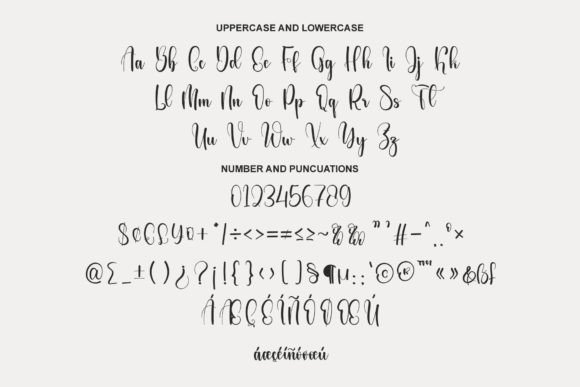 UPPERCASE AND LOWERCASE
Aa Bb Cc Dd Ee Ff Gg Hh Ii Jj Kk
Ll Mm Nn Oo Pp Qq Rr Ss Tt
Uu Vv Ww Xx Yy Zz
NUMBER AND PUNCUATIONS
0123456789
+ * / ÷ < > = ≠ ≤ ≥ ~ # -
@ Σ _ ± ( ) ¿ ? ¡ ! { } ‹ › [ ] § ¶ µ © ® ™ « » & ß
Á Æ Ç É Í Ñ Ó Ø Œ Ú
áæçéíñóøœú